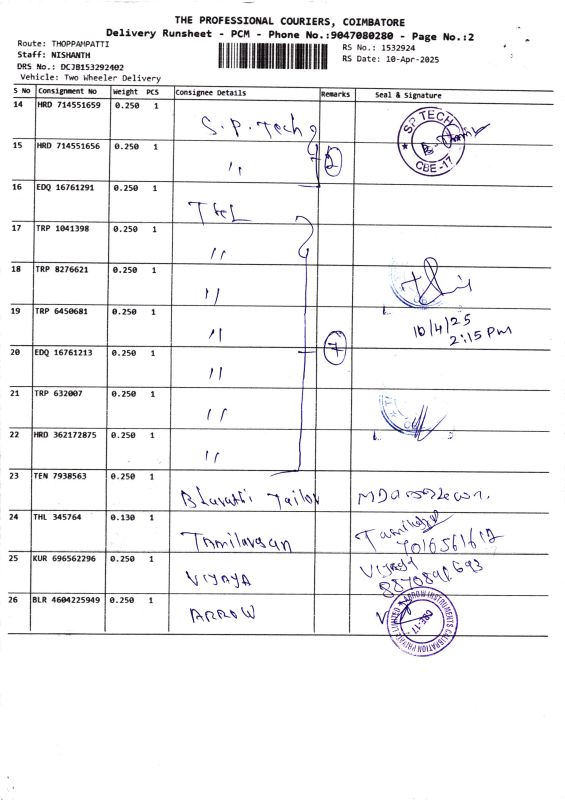 THE PROFESSIONAL COURIERS, COIMBATORE
Delivery Runsheet - PCM - Phone No.:9047080280 - Page No.:2
Route: THOPPAMPATTI
Staff: NISHANTH
DRS No.: DCJB153292402
Vehicle: Two Wheeler Delivery
RS No.: 1532924
RS Date: 10-Apr-2025
S No Consignment No Weight PCS Consignee Details Remarks Seal & Signature
14 HRD 714551659 0.250 1 S.P. Tech
SP TECH
CBE-17
15 HRD 714551656 0.250 1 〃 2
16 EDQ 16761291 0.250 1
17 TRP 1041398 0.250 1 〃
18 TRP 8276621 0.250 1 〃
19 TRP 6450681 0.250 1 〃
10/4/25
2:15 pm
20 EDQ 16761213 0.250 1 〃 7
21 TRP 632007 0.250 1 〃
22 HRD 362172875 0.250 1 〃
23 TEN 7938563 0.250 1 Bharathi Tailor
24 THL 345764 0.130 1 Tamilarasan
7016561612
25 KUR 696562296 0.250 1 VIJAYA
26 BLR 4604225949 0.250 1 ARROW
ARROW INSTRUMENTS CALIBRATION PRIVATE LIMITED
CBE-17